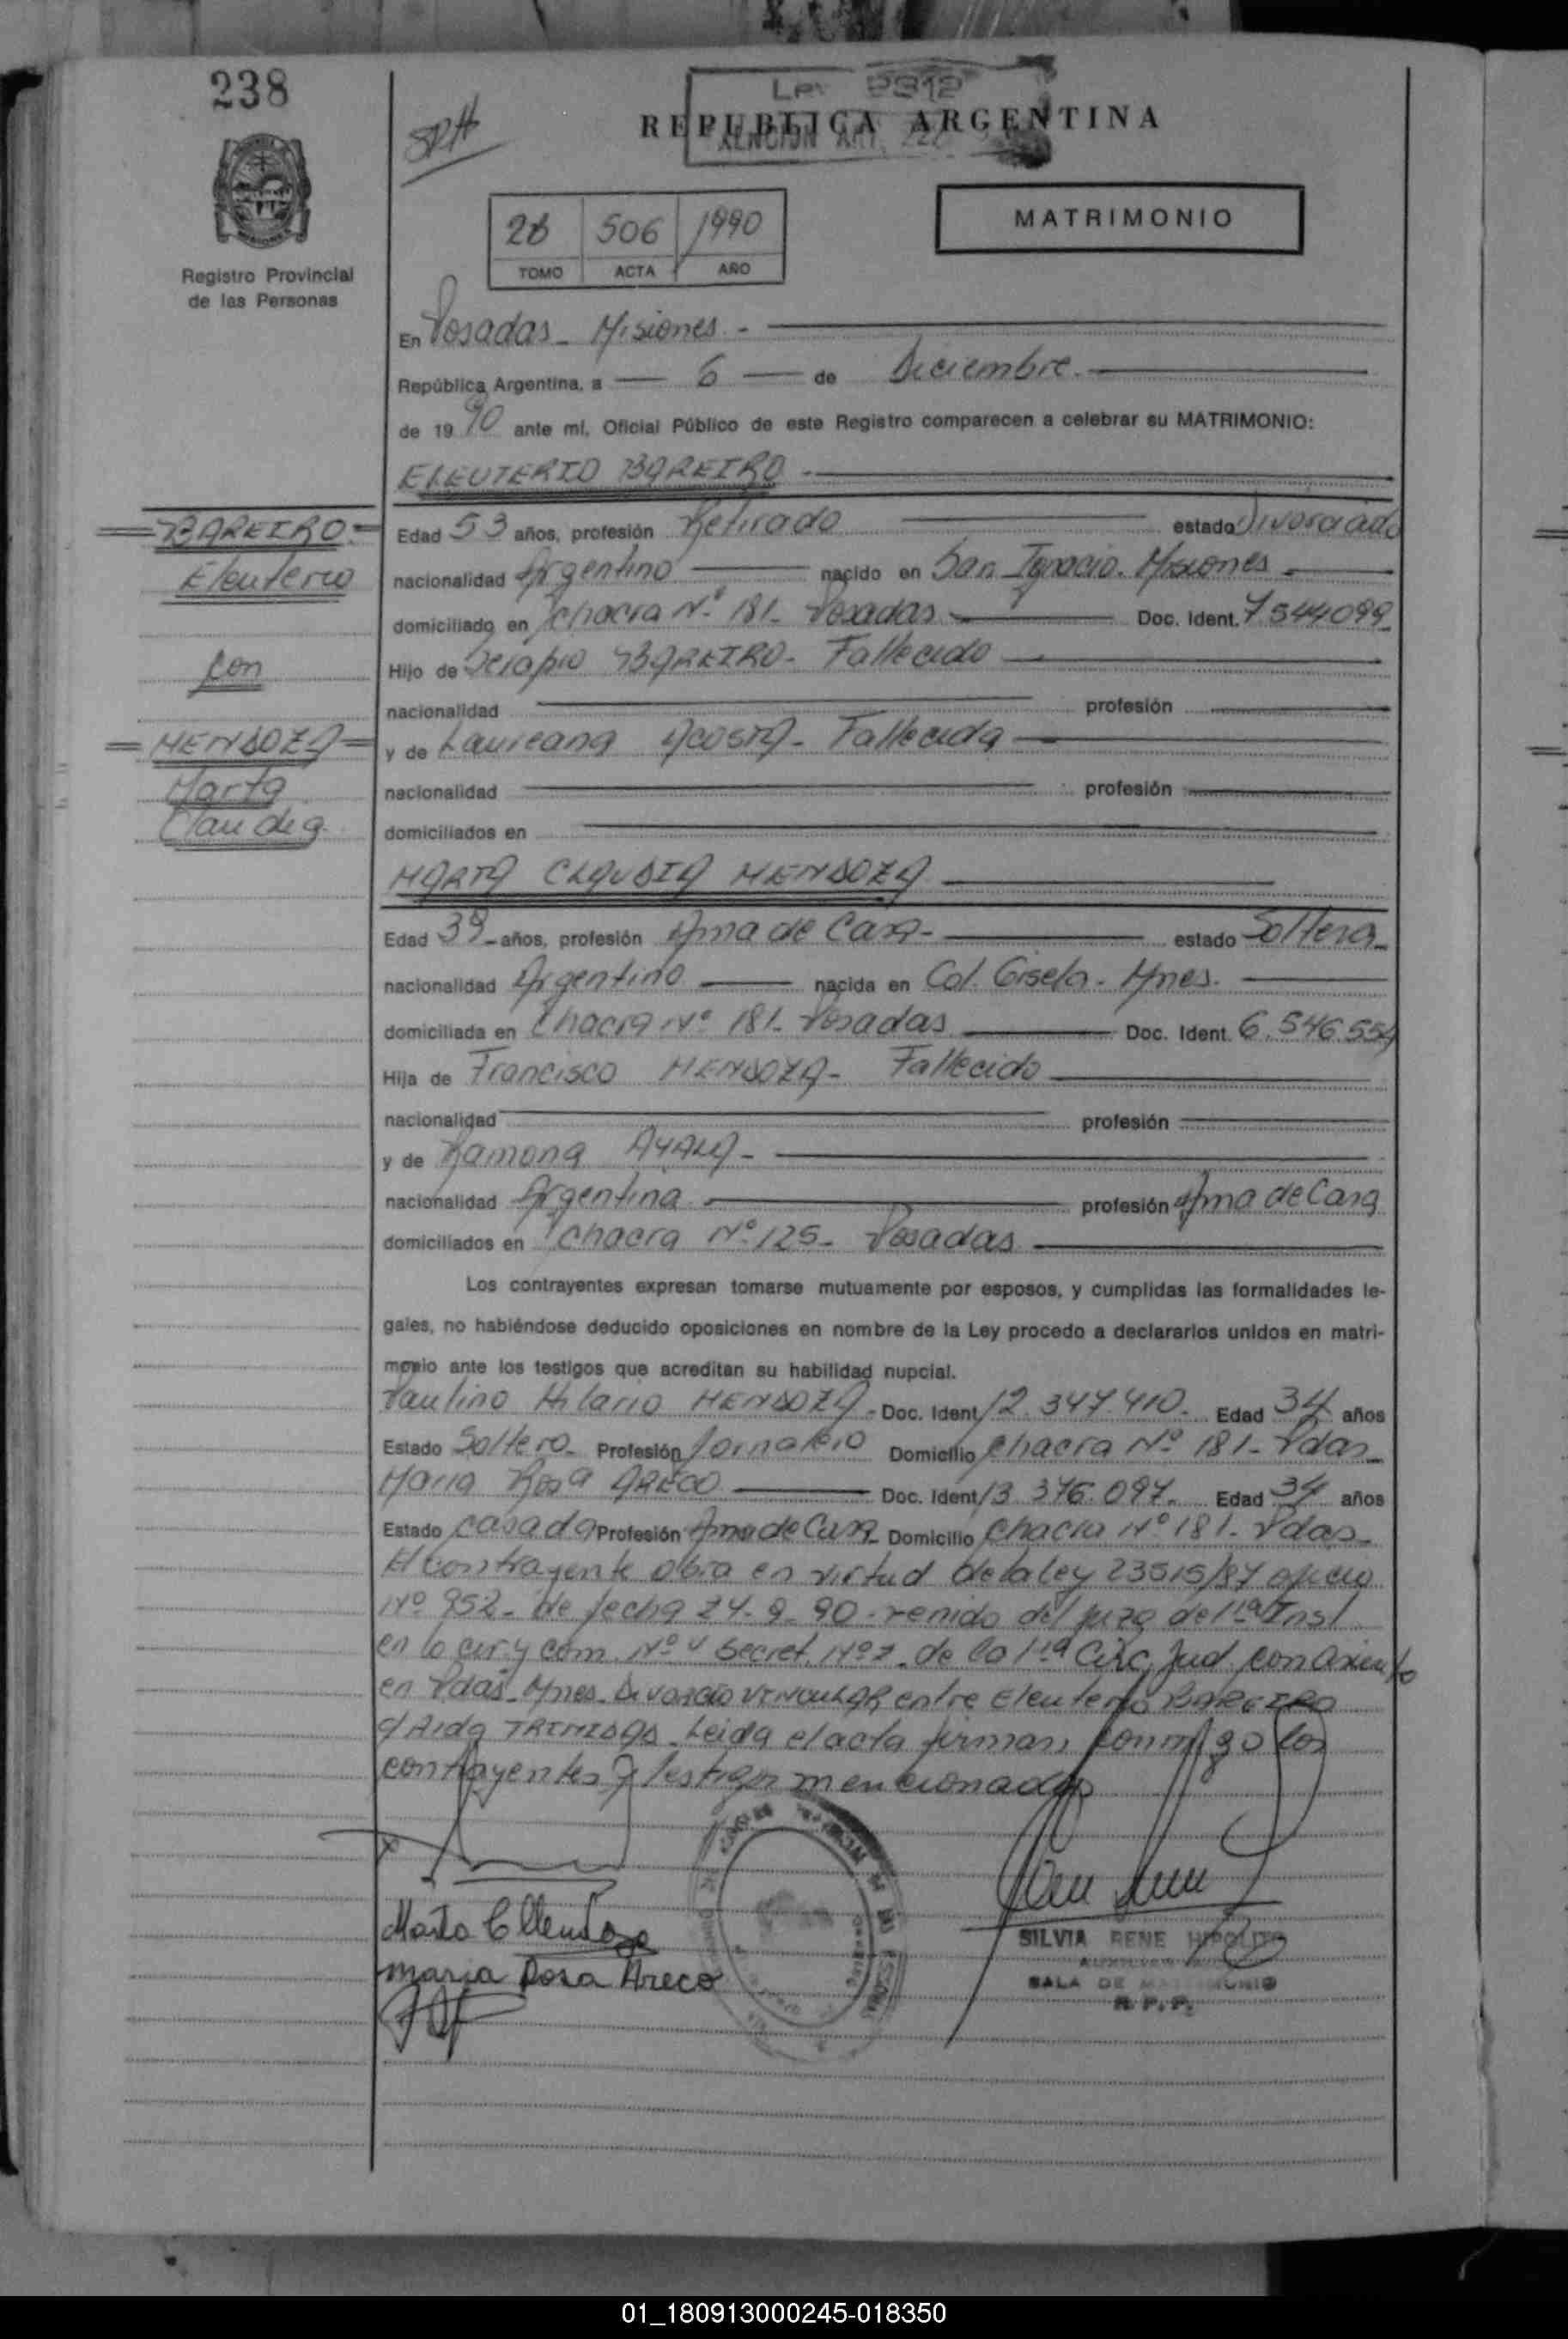 238
SRH
Ley 2312
REPUBLICA ARGENTINA
ART.
MATRIMONIO
506 1990
TOMO ACTA AÑO
Registro Provincial
de las Personas
En Posadas - Misiones -
República Argentina, a 6 de Diciembre.
de 1990 ante mí, Oficial Público de este Registro comparecen a celebrar su MATRIMONIO:
ELEUTERIO BAREIRO
BAREIRO
Eleuterio
con
MENDOZA
Marta
Claudia
Edad 53 años, profesión Retirado estado Divorciado
nacionalidad Argentino nacido en San Ignacio. Misiones
domiciliado en Chacra Nº 181- Posadas Doc. Ident. 7.544099
Hijo de Serapio BAREIRO- Fallecido
nacionalidad profesión
y de Laureana ACOSTA- Fallecida
nacionalidad profesión
domiciliados en
MARTA CLAUDIA MENDOZA
Edad 39 años, profesión Ama de Casa- estado Soltera
nacionalidad Argentino nacida en Col. Gisela- Mnes.
domiciliada en Chacra Nº 181- Posadas Doc. Ident. 6.546.554
Hija de Francisco MENDOZA- Fallecido
nacionalidad profesión
y de Ramona AYALA-
nacionalidad Argentina profesión Ama de Casa
domiciliados en Chacra Nº 125- Posadas
Los contrayentes expresan tomarse mutuamente por esposos, y cumplidas las formalidades le-
gales, no habiéndose deducido oposiciones en nombre de la Ley procedo a declararlos unidos en matri-
monio ante los testigos que acreditan su habilidad nupcial.
Paulino Hilario MENDOZA- Doc. Ident. 12.347.410. Edad 34 años
Estado Soltero- Profesión Jornalero Domicilio Chacra Nº 181- Pdas
Maria Rosa ARECO Doc. Ident. 13.376.097. Edad 34 años
Estado casada Profesión Ama de Casa Domicilio Chacra Nº 181- Pdas
El contrayente obra en virtud de la ley 23515/87 oficio
Nº 952- de fecha 24-9-90- venido del Juzg de 1ra Inst
en lo civ. y com. Nº 4 Secret. Nº de la 1ra Circ. Jud. con asiento
en Pdas- Mnes- Divorcio VINCULAR entre Eleuterio BAREIRO
c/ Aida Leida el acta firman conmigo los
contrayentes y testigos mencionados
Marta C Mendoza
Maria Rosa Areco
SILVIA RENE HIPOLITO
SALA DE MATRIMONIO
R. P. P.
01_180913000245-018350